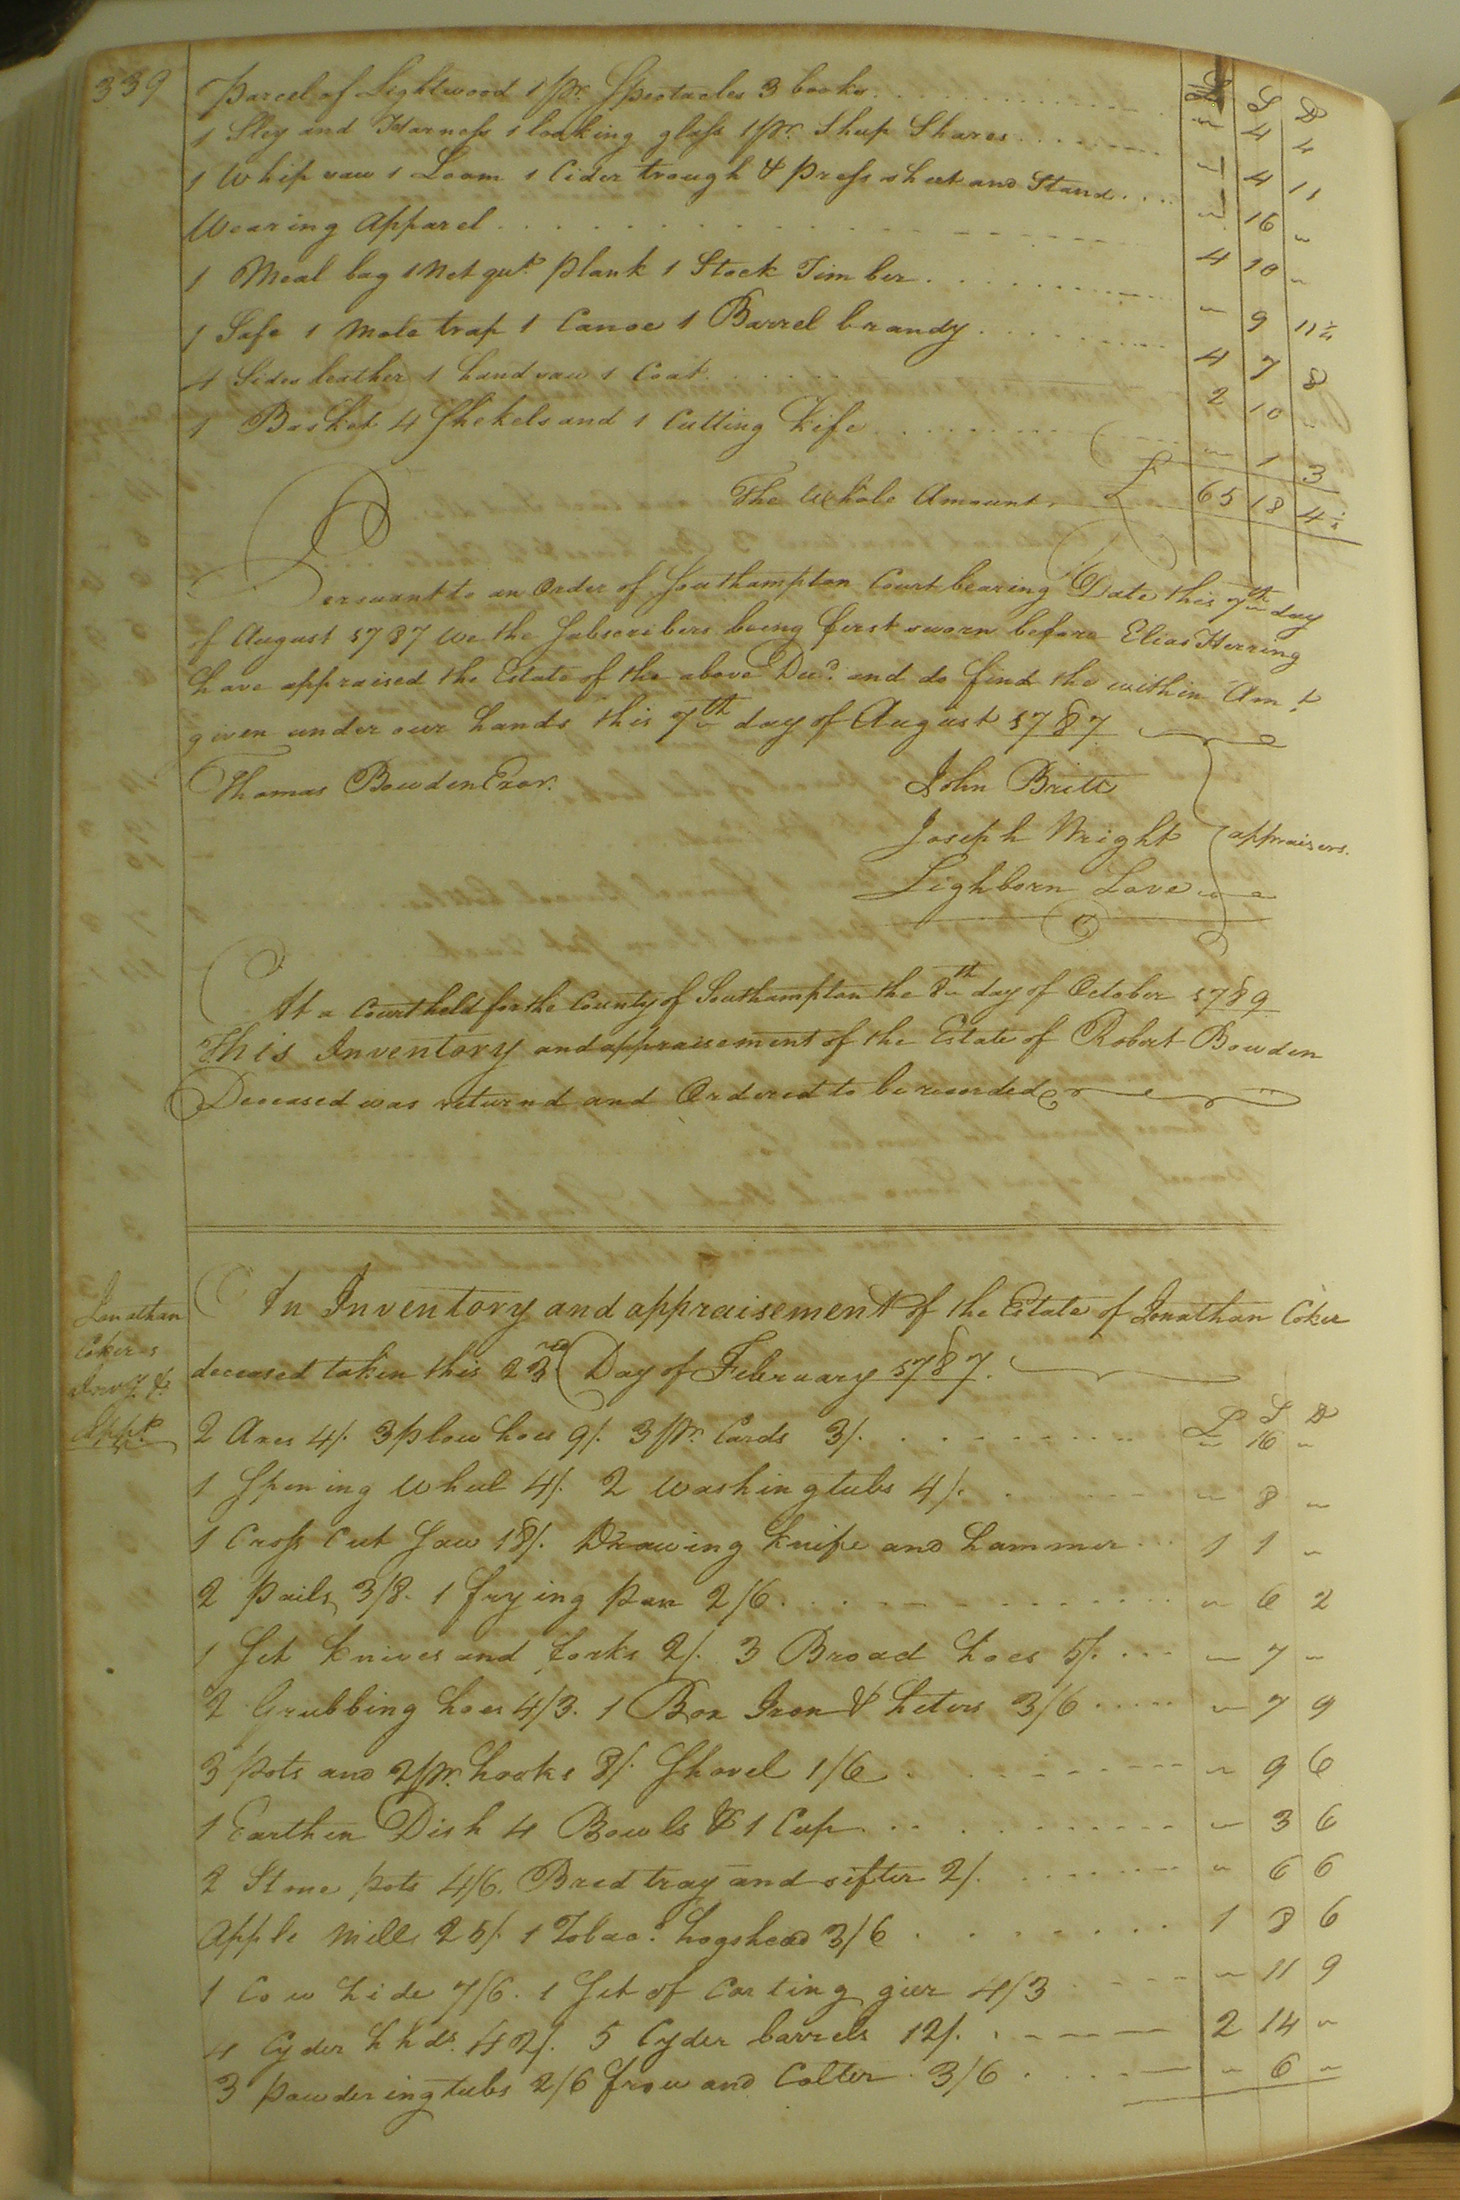 339
£ S D
Parcel of Lightwood 1 pr. Spectacles 3 books " 4 4
1 Sley and Harness 1 looking glass 1 pr. Shep Shares " 4 11
1 Whip saw 1 Loom 1 Cider trough & press sheet and Stand " 16 "
Wearing Apparel 4 10 "
1 Meal bag 1 Net qut. plank 1 Stock Timber " 9 11¼
1 Safe 1 Mole trap 1 Canoe 1 Barrel brandy 4 7 8
4 Sides leather 1 handsaw 1 Coat 2 10 "
1 Basket 4 Shekels and 1 Cutting Kife " 1 3
The Whole Amount £ 65 18 4½
Persuant to an Order of Southampton Court bearing Date this 7th day
of August 1787 we the Subscribers being first sworn before Elias Herring
have appraised the Estate of the above Decd. and do find the within Amt.
given under our hands this 7th day of August 1787
Thomas Bowden Exor. John Britt
Joseph Wright appraisers.
Lighborn Love
At a Court held for the County of Southampton the 8th day of October 1789
This Inventory and appraisement of the Estate of Robert Bowden
Deceased was returnd and Ordered to be recorded
Jonathan
Cokers
Invy. &
Appt.
An Inventory and appraisement of the Estate of Jonathan Coker
deceased taken this 23rd Day of February 1787.
£ S D
2 Axes 4/. 3 plow hoes 9/. 3 pr. Cards 3/. " 16 "
1 Spening Wheel 4/. 2 washing tubs 4/. " 8 "
1 Cross Cut Saw 18/. Drawing knife and hammer 1 1 "
2 Pails 3/8. 1 frying Pan 2/6 " 6 2
1 Set knives and forks 2/. 3 Broad hoes 5/. " 7 "
2 Grubbing hoes 4/3. 1 Box Iron & heters 3/6 " 7 9
3 Pots and 2 pr. hooks 8/. Shovel 1/6 " 9 6
1 Earthen Dish 4 Bowls & 1 Cup " 3 6
2 Stone pots 4/6. Bred tray and sifter 2/. " 6 6
Apple Mill 25/. 1 Tobaco. hogshead 3/6 1 8 6
1 Cow hide 7/6. 1 Set of Carting gier 4/3 " 11 9
4 Cyder hhds. 42/. 5 Cyder barrels 12/. 2 14 "
3 Powdering tubs 2/6 frow and Colter 3/6 " 6 "